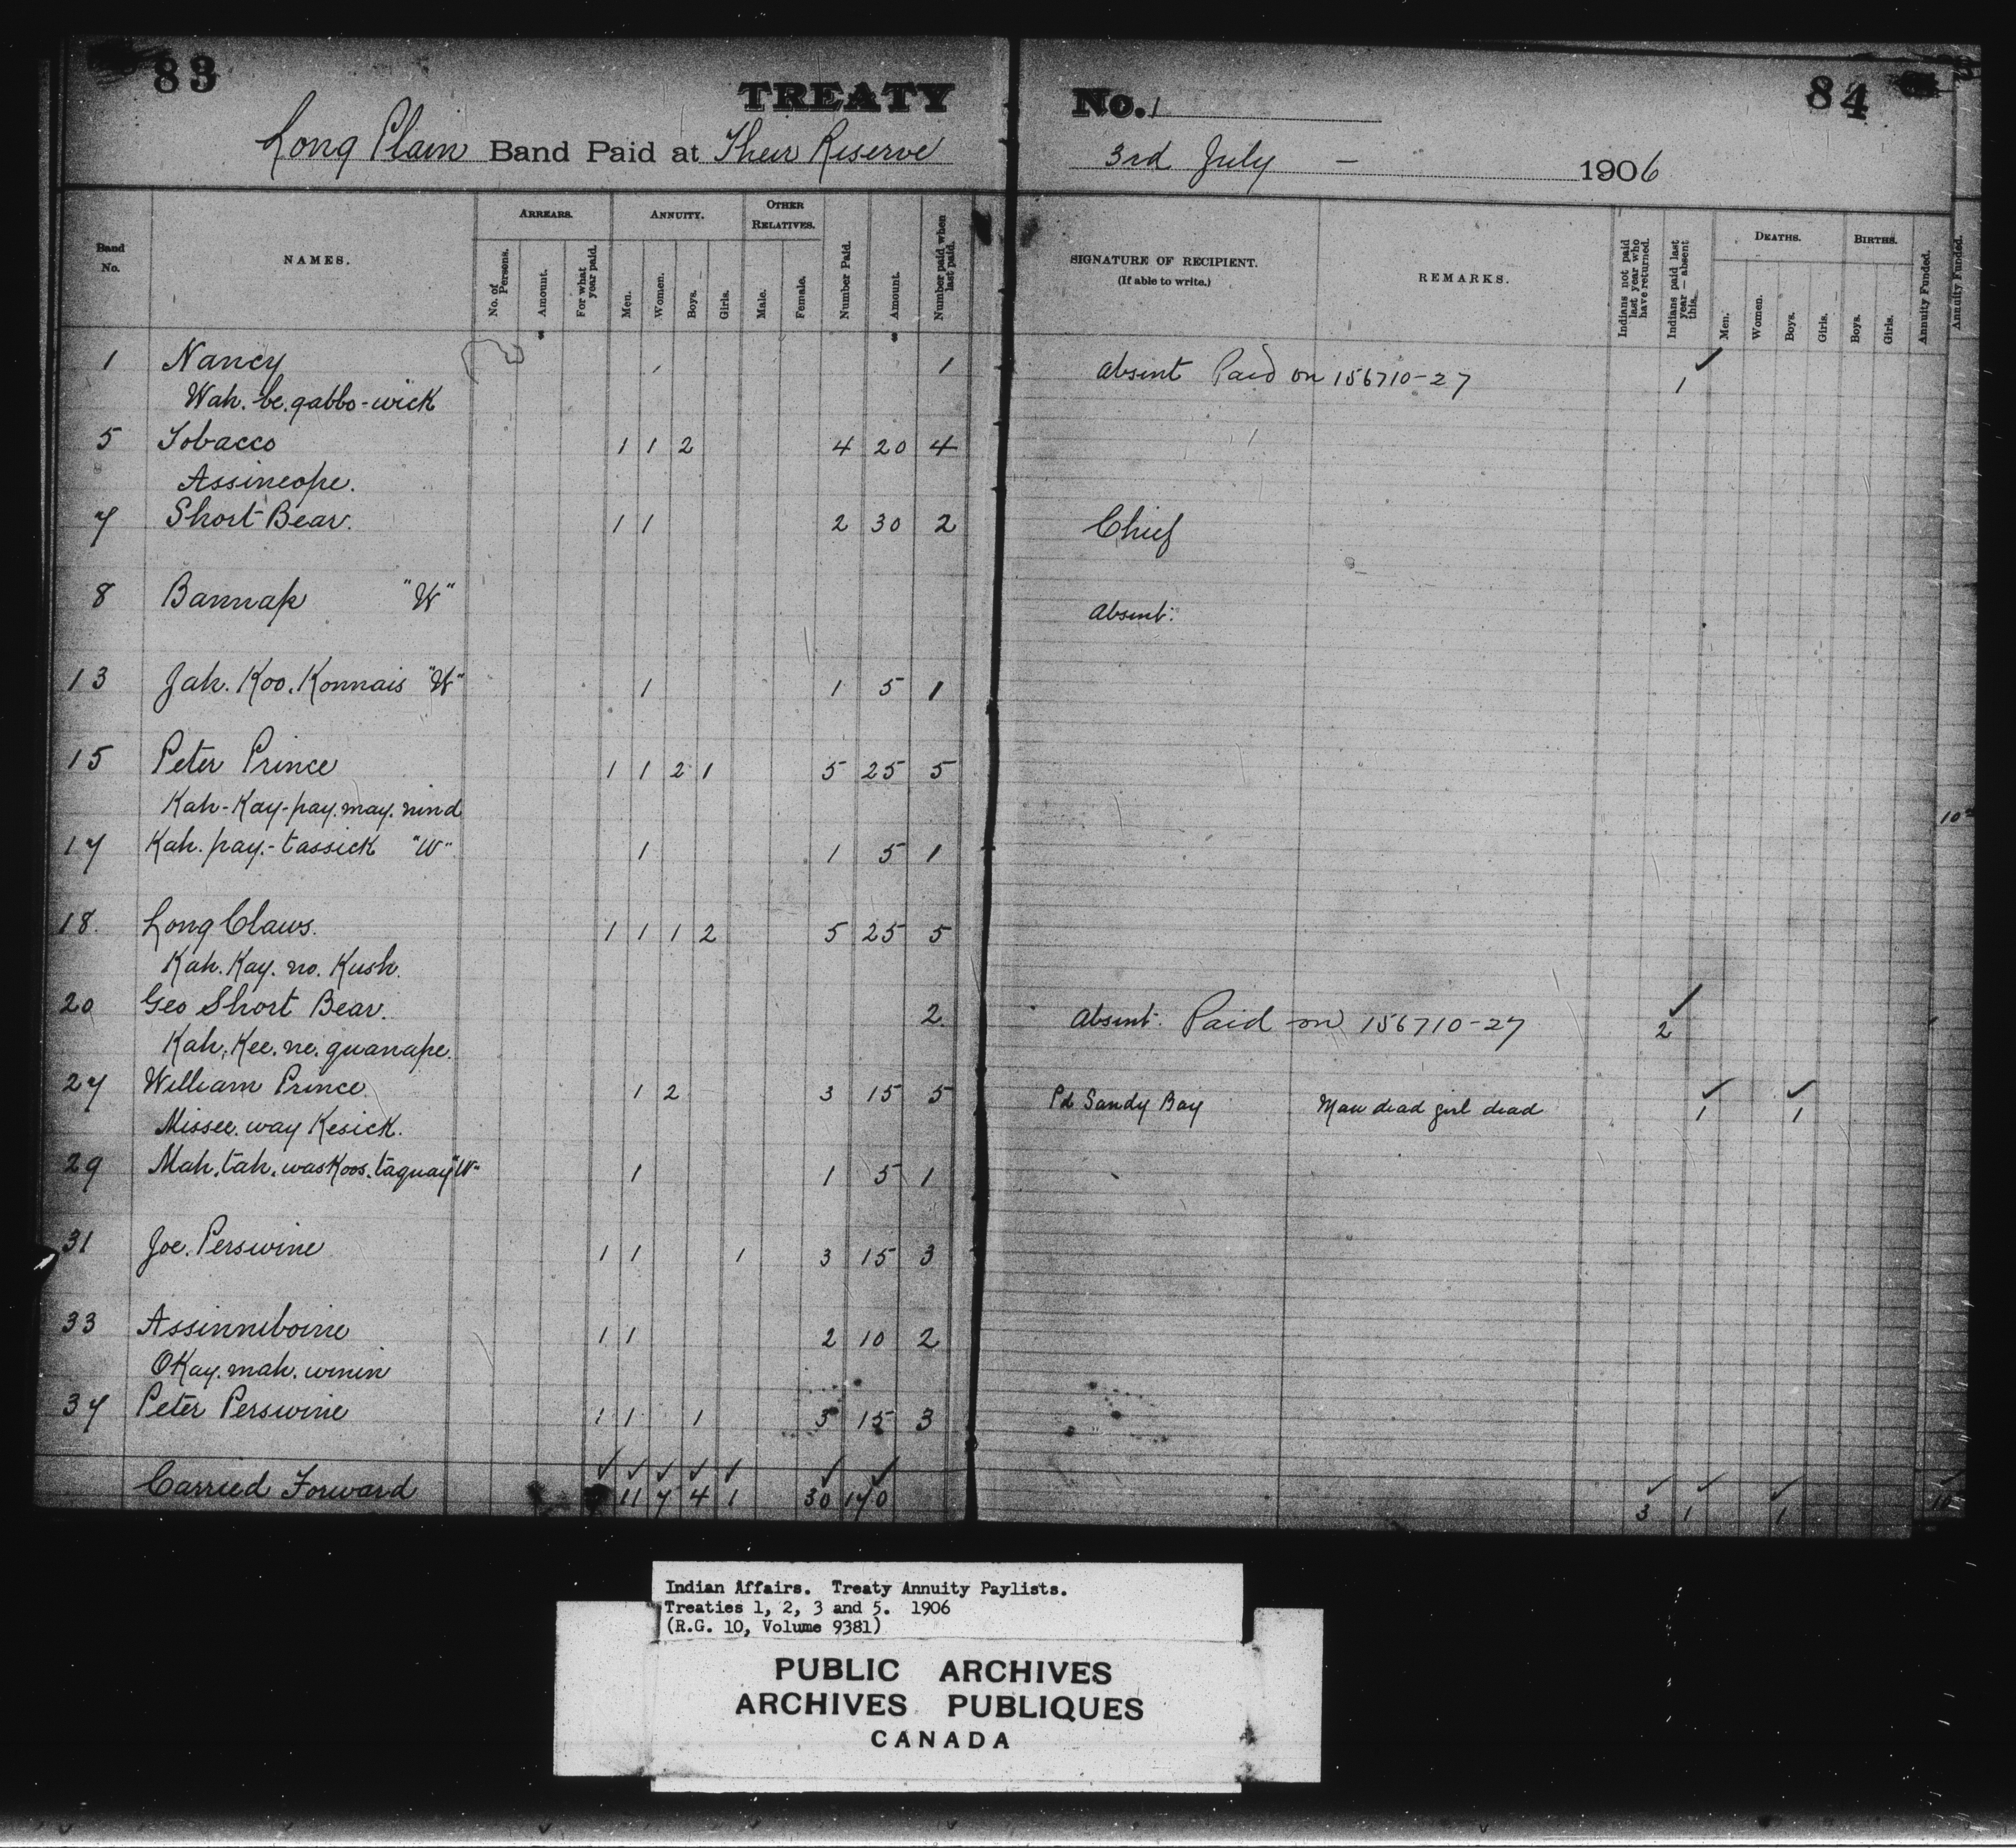 83
84
TREATY No. 1
Long Plain Band Paid at Their Reserve 3rd July - 1906
Band No.
NAMES.
ARREARS.
No. of Persons.
Amount.
For what year paid.
ANNUITY.
Men.
Women.
Boys.
Girls.
OTHER RELATIVES.
Male.
Female.
Number Paid.
Amount.
Number paid when last paid.
SIGNATURE OF RECIPIENT.
(If able to write.)
REMARKS.
Indians not paid last year who have returned.
Indians paid last year — absent this.
DEATHS.
Men.
Women.
Boys.
Girls.
BIRTHS.
Boys.
Girls.
Annuity Funded.
Annuity Funded.
1 Nancy 1 absent Paid on 156710-27 1
Wah. be. gabbo-wick
5 Tobacco 1 1 2 4 20 4
Assineope.
7 Short Bear. 1 1 2 30 2 Chief
8 Bannap "W" absent.
13 Jah. Koo. Konnais "W" 1 1 5 1
15 Peter Prince 1 1 2 1 5 25 5
Kah-Kay-pay. may. nind
17 Kah. pay.-tassick "W" 1 1 5 1
18. Long Claws. 1 1 1 2 5 25 5
Kah. Kay. no. Kush.
20 Geo Short Bear. 2 absent. Paid on 156710-27 2
Kah. Kee. ne. guanape.
27 William Prince. 1 2 3 15 5 Pd Sandy Bay Man dead girl dead 1 1
Missee. way Kesick.
29 Mah. tah. wasKoos. taguay "W" 1 1 5 1
31 Joe. Perswine 1 1 1 3 15 3
33 Assinniboine 1 1 2 10 2
OKay. mah. winin
37 Peter Perswine 1 1 1 3 15 3
Carried Forward 11 7 4 1 30 170 3 1 1
Indian Affairs. Treaty Annuity Paylists.
Treaties 1, 2, 3 and 5. 1906
(R.G. 10, Volume 9381)
PUBLIC ARCHIVES
ARCHIVES PUBLIQUES
CANADA